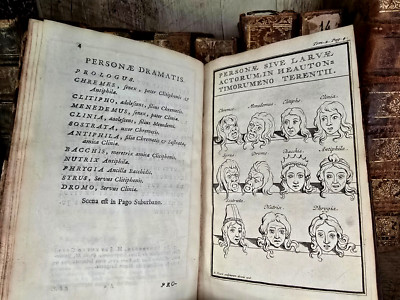 4
PERSONÆ DRAMATIS.
PROLOGUS.
CHREMES, senex, pater Clitiphonis &
Antiphilæ.
CLITIPHO, adolescens, filius Chremetis.
MENEDEMUS, senex, pater Cliniæ.
CLINIA, adolescens, filius Menedemi.
SOSTRATA, uxor Chremetis.
ANTIPHILA, filia Chremetis & Sostratæ,
amica Cliniæ.
BACCHIS, meretrix amica Clitiphonis.
NUTRIX Antiphilæ.
PHRYGIA Ancilla Bacchidis.
SYRUS, Servus Clitiphonis.
DROMO, Servus Cliniæ.
Scena est in Pago Suburbano.
PRO-
PERSONÆ SIVE LARVÆ
ACTORUM, IN HEAUTON-
TIMORUMENO TERENTII.
Chremes. Menedemus. Clitipho. Clinia.
Syrus. Dromo. Bacchis. Antiphila.
Sostrata. Nutrix. Phrygia.